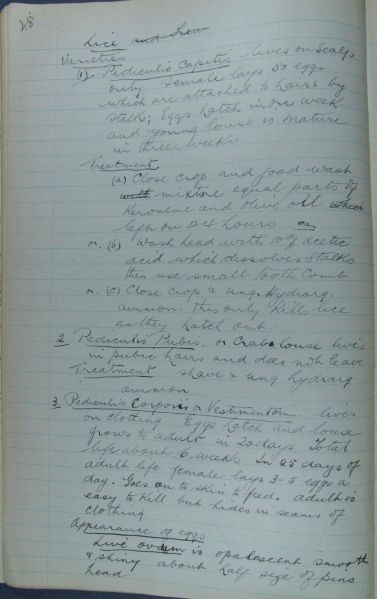 48
Lice and fleas
Varieties
(1) Pediculis Capitis lives on Scalp
only female lays 50 eggs
which are attached to hairs by
stalk; Eggs hatch in one week
and young louse is mature
in three weeks
Treatment
(a) Close crop and good wash
with mixture equal parts of
Kerosene and olive oil which
left on 24 hours.
or. (b) Wash head with 10% acetic
acid which dissolves stalks
then use small tooth comb
or. (c) Close crop & ung. Hydrarg.
ammon. this only kills lice
as they hatch out.
2 Pediculis Pubis. or Crab louse lives
in pubic hairs and does not leave
Treatment shave & ung hydrarg
ammon
3 Pediculis Corporis or Vestimentorum lives
on clothing Eggs hatch and louse
grows to adult in 20 days. Total
life about 6 weeks. In 25 days of
adult life female lays 3-5 eggs a
day. Goes on to skin to feed. adult is
easy to kill but hides in seams of
clothing
Appearance of eggs
Live ovum is opalescent smooth
& shiny about half size of pins
head